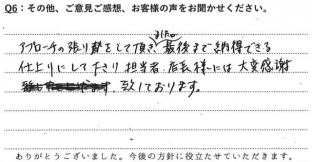 Q6：その他、ご意見ご感想、お客様の声をお聞かせください。
アプローチの張り替をして頂き 最後まで納得できる
仕上りにして下さり 担当者、店長様には大変感謝
致しております。
ありがとうございました。今後の方針に役立たせていただきます。